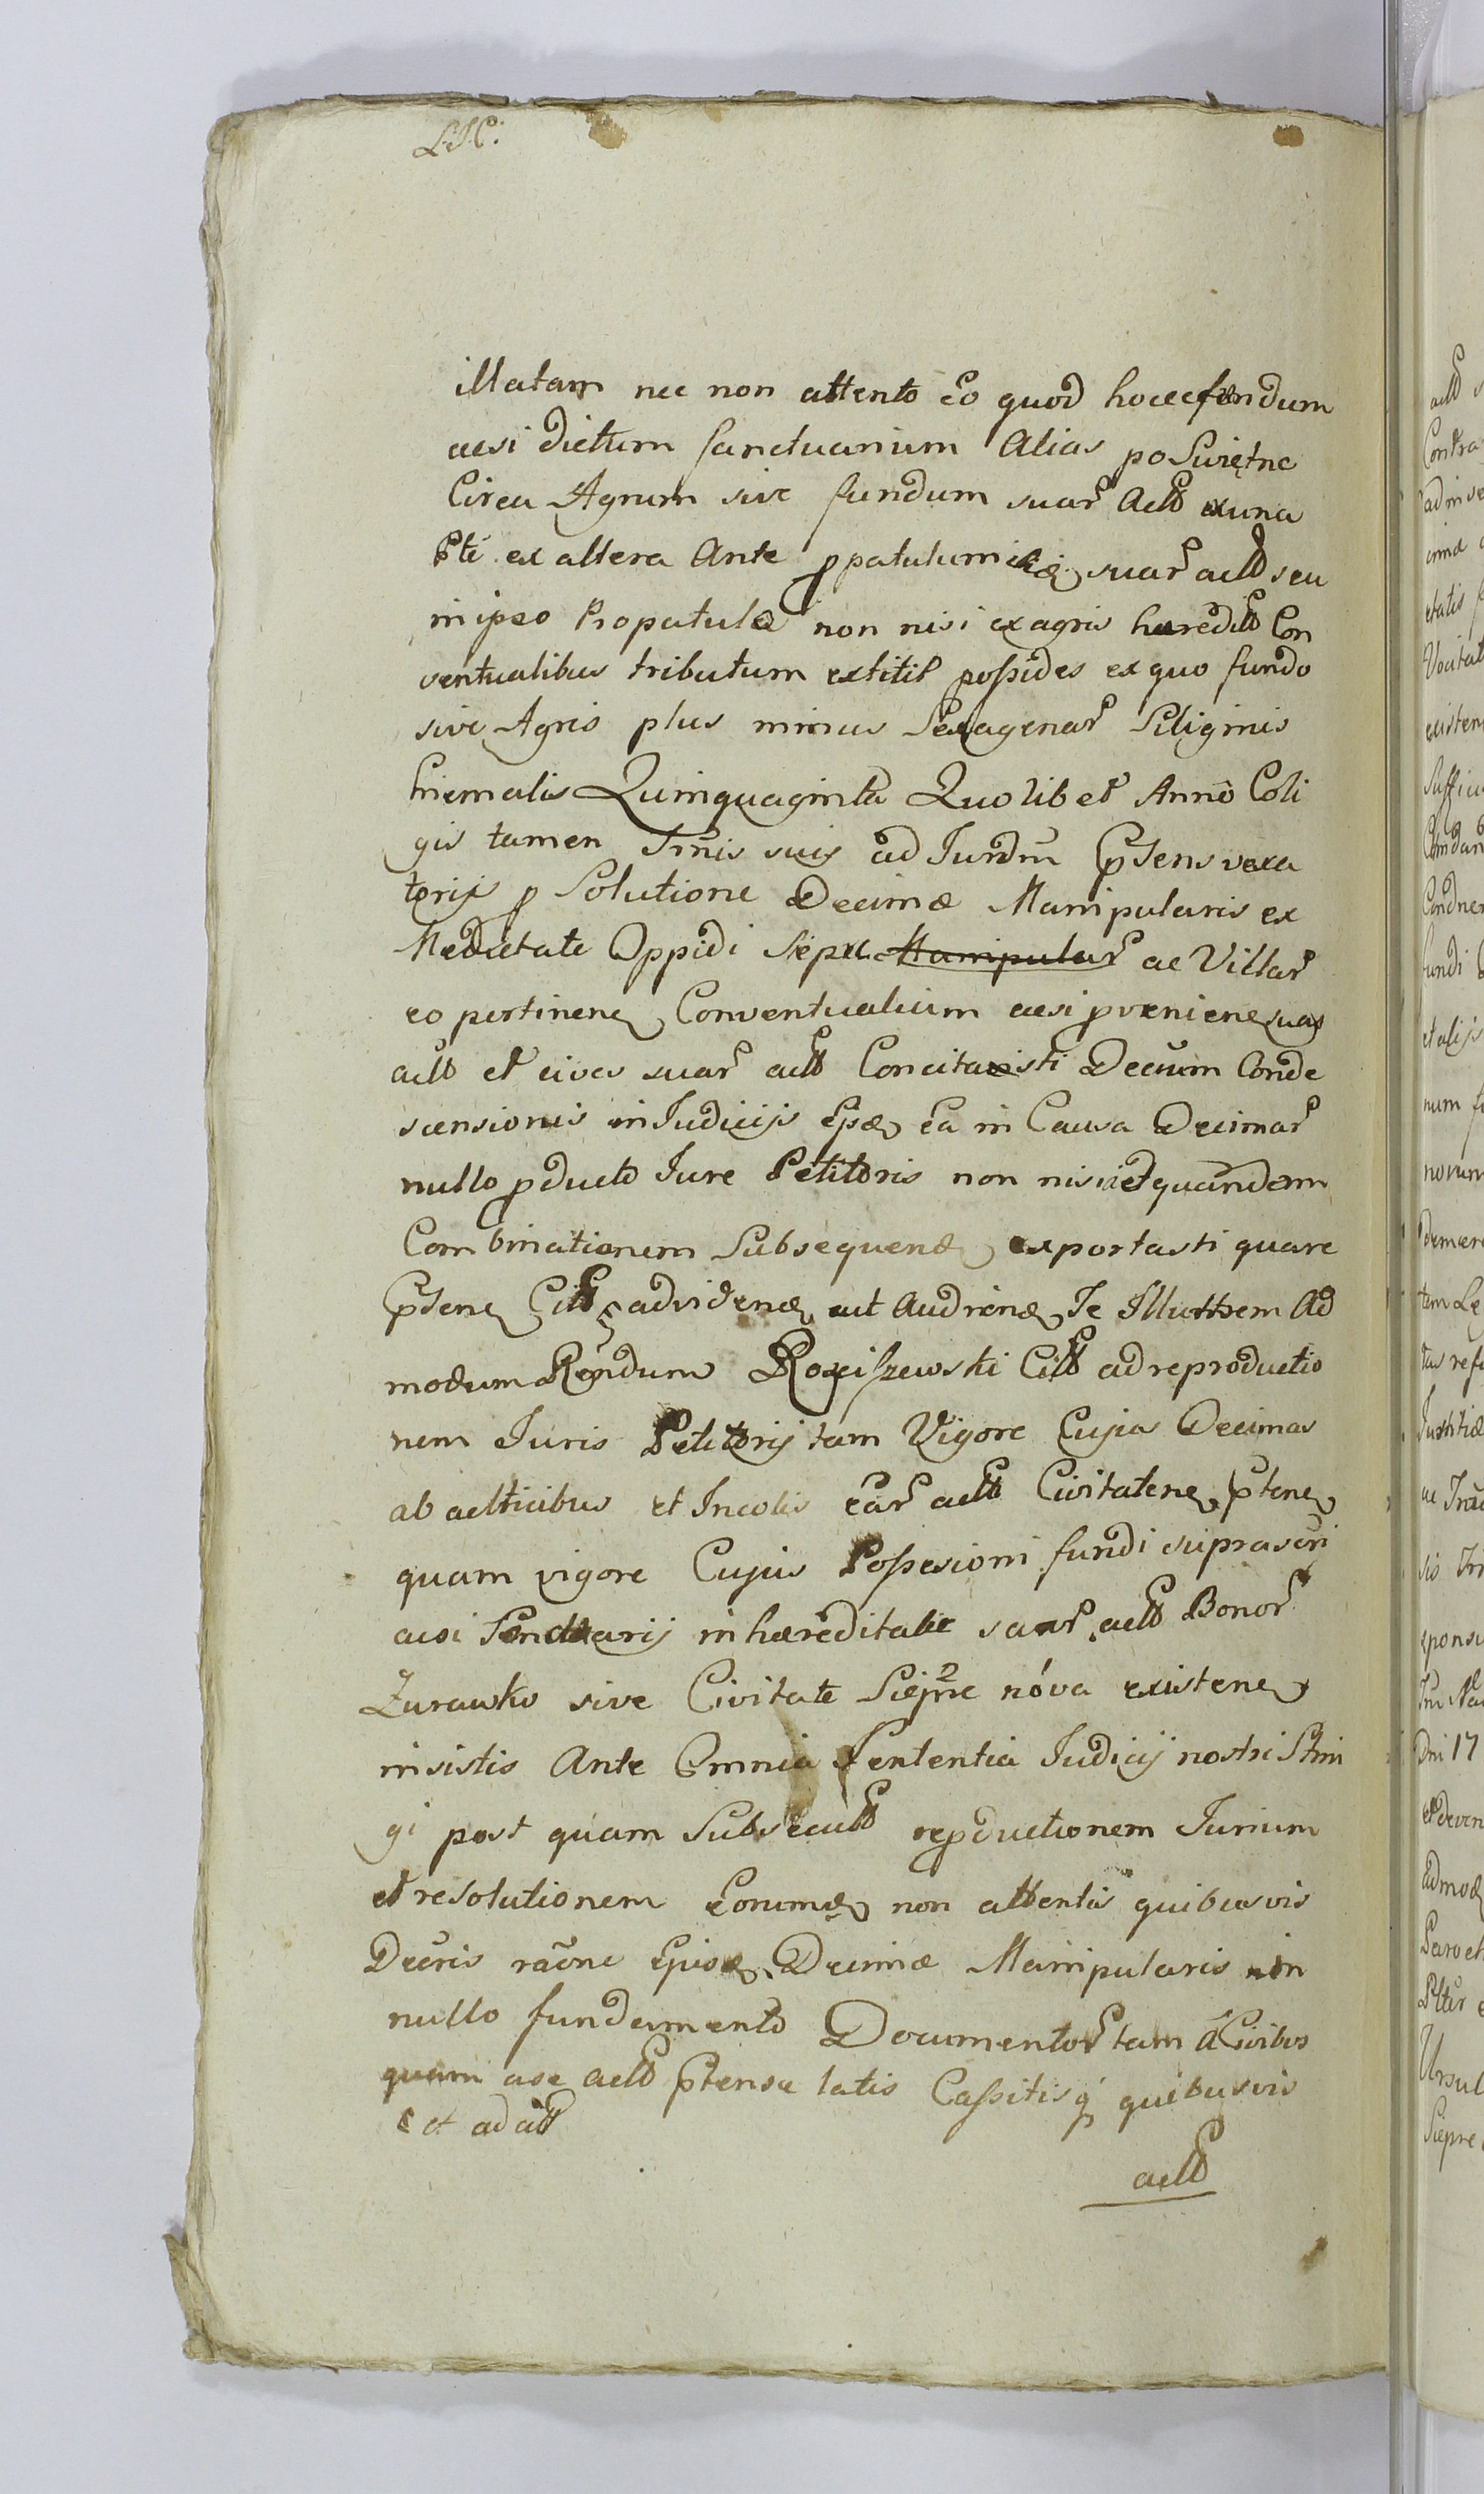 illatam nec non attento Eo quod hocce fundum
acsi dictum Sanctuarium Alias po Swiętne
Circa Agrum sive fundum suar Actt ex una
Pte ex altera Ante ppatulum suar actt seu
in ipso Propatulo non nisi ex agris haeredill Con
ventualibus tributum extitit possides ex quo fundo
sive Agris plus minus Sexagenar Siliginis
hiemalis Quinquaginta Quolibet Anno Coli
gis tamen Trnis suis ad Iurdm Ptens vexa
torijs p Solutione Decimæ Manipularis ex
Medietate Oppidi Siepr. Manipular ac Villar
eo pertinen Conventualium acsi pvenien suas
actt et cives suar actt Concitavisti Decum Conde
scensionis in Judicijs Epa Ea in Causa Decimar
nullo pducto Iure Petitoris non nisi ad quandam
Combinationem Subsequend exportasti quare
Ptene Citt ad videnđ aut Audiend Te Illustrem Ad
modum Rndum Rogiszewski Citt ad reproductio
nem Iuris Petitorij tam Vigore Cujus Decimas
ab acticibus et Incolis Ear actt Civitatene Ptene
quam vigore Cujus Possesioni fundi suprascri
acsi Sanctuarij in haereditate suar actt Bonor
Zurawko sive Civitate Siepc nova existene
insistis Ante Omnia Sententia Judicij nostri Strin
gi post quam Subsecutt repductionem Iurium
et resolutionem Eorumđ non attentis quibusvis
Decris raõne Ejusd Decimæ Manipularis in
nullo fundamento Documentor tam a Civibus
quam a se actt Ptensa latis Cassitisq quibusvis
et ad act
actt